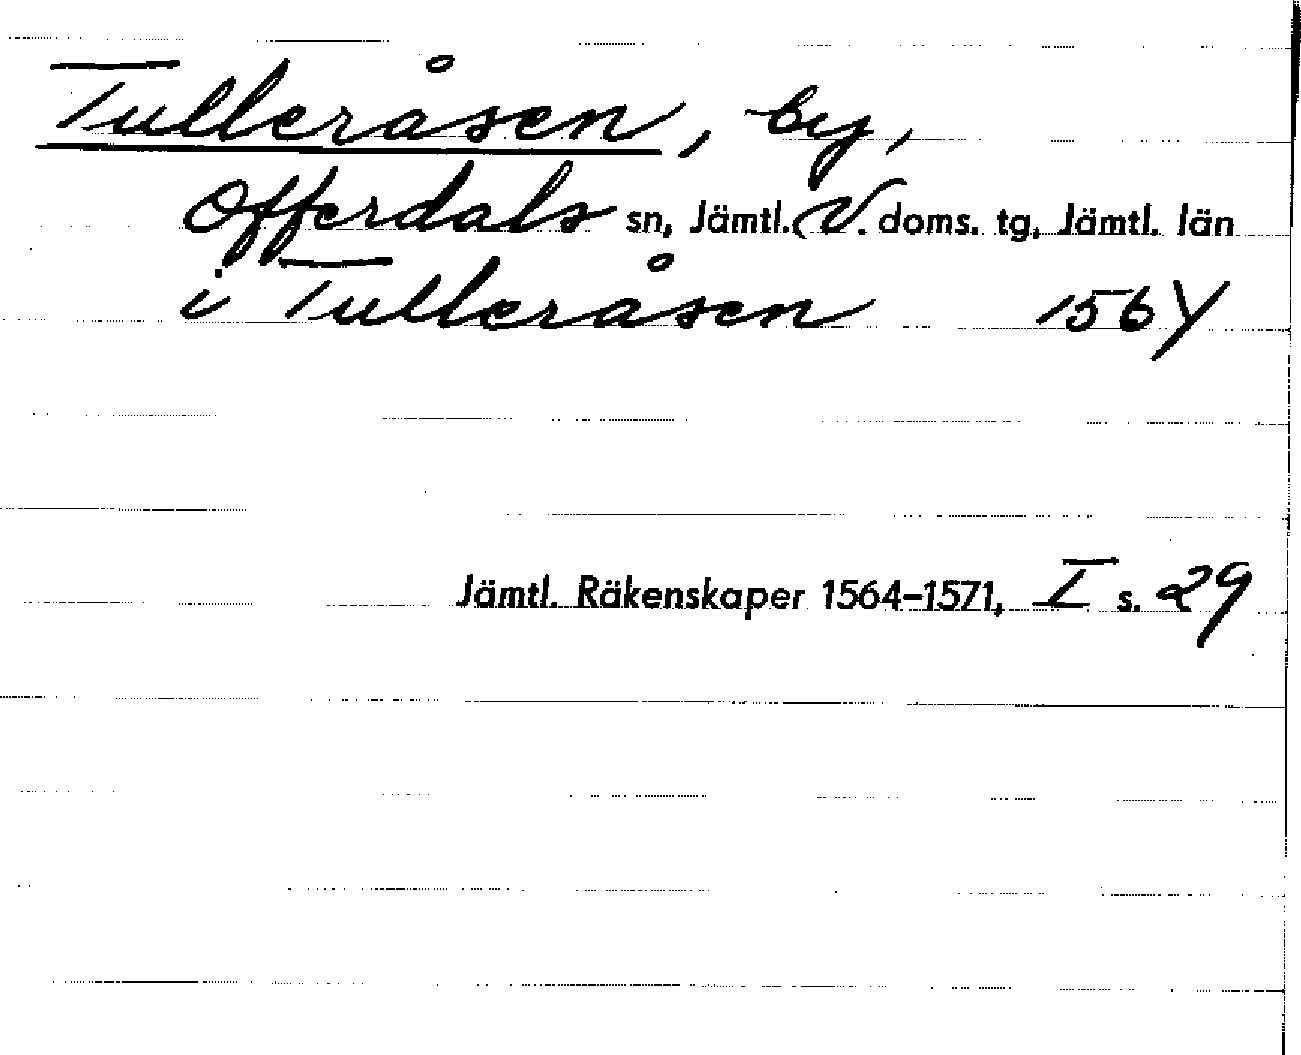 Tulleråsen, by,
Offerdals sn, Jämtl. V. doms. tg, Jämtl. län
i Tulleråsen 1564
Jämtl. Räkenskaper 1564-1571, I s. 29